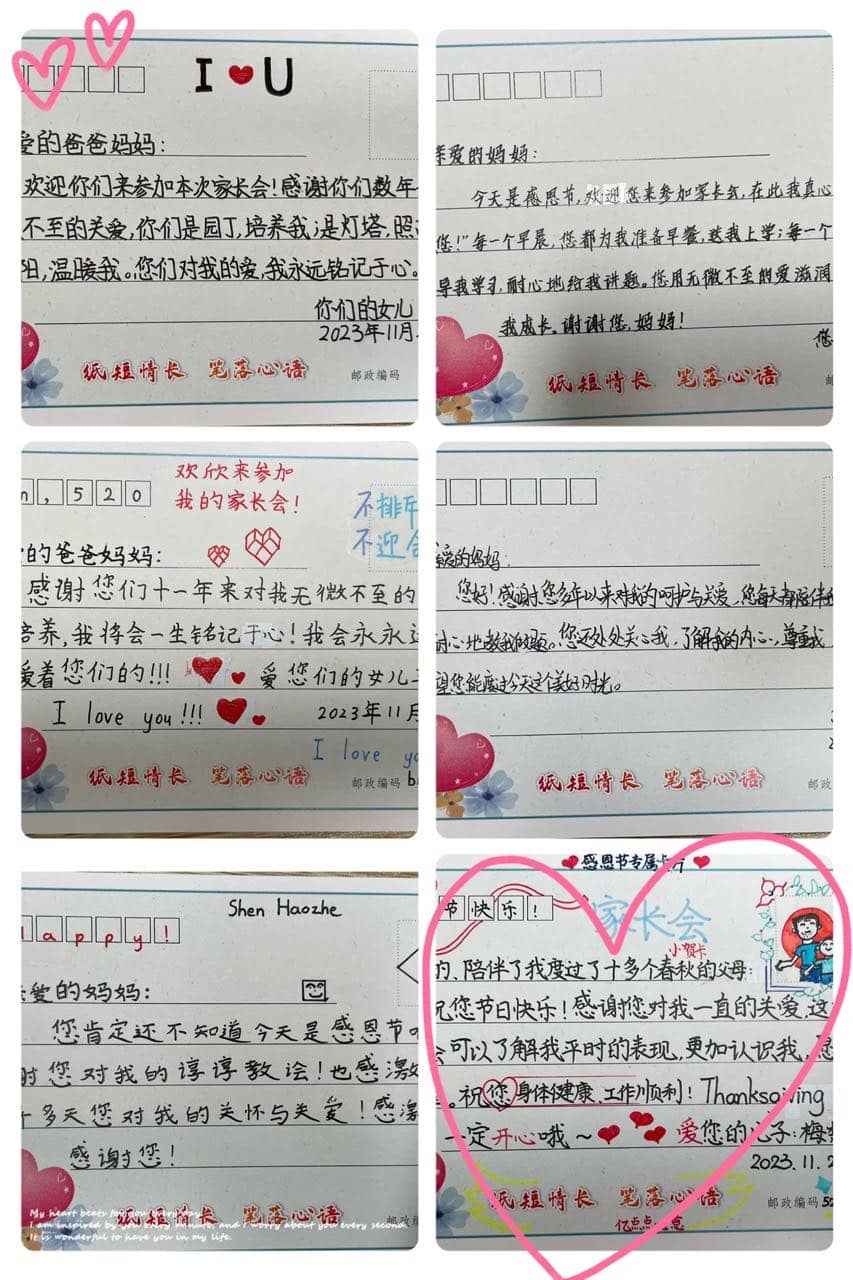 I ❤ U
爱的爸爸妈妈：
欢迎你们来参加本次家长会！感谢你们数年
不至的关爱，你们是园丁，培养我；是灯塔，照
阳，温暖我。您们对我的爱，我永远铭记于心。
你们的女儿
2023年11月
纸短情长 笔落心语
邮政编码
亲爱的妈妈：
今天是感恩节，欢迎您来参加家长会，在此我真心
您！"每一个早晨，您都为我准备早餐，送我上学；每一个
导我学习，耐心地给我讲题。您用无微不至的爱滋润
我成长。谢谢您，妈妈！
您
纸短情长 笔落心语
n，520
欢欣来参加
我的家长会！
不排斥
不迎合
的爸爸妈妈：
感谢您们十一年来对我无微不至的
培养，我将会一生铭记于心！我会永永远
爱着您们的!!! 爱您们的女儿
I love you!!!
2023年11月
I love yo
纸短情长 笔落心语
邮政编码
亲爱的妈妈：
您好！感谢您多年以来对我的呵护与关爱，您每天都陪伴
耐心地教我的题。您还处处关心我，了解我的内心，尊重我
望您能度过今天这个美好时光。
纸短情长 笔落心语
邮政编码
Shen Haozhe
Happy!
亲爱的妈妈：
您肯定还不知道今天是感恩节吧
时您对我的谆谆教诲！也感激
十多天您对我的关怀与关爱！感激
感谢您！
纸短情长 笔落心语
邮政编
My heart beats for you every day.
I am inspired by you every minute, and I worry about you every second.
It is wonderful to have you in my life.
感恩节专属卡片
节快乐！
家长会
小贺卡
的、陪伴了我度过了十多个春秋的父母：
祝您节日快乐！感谢您对我一直的关爱，这
会可以了解我平时的表现，更加认识我，
。祝您身体健康、工作顺利！Thanksgiving
一定开心哦～ 爱您的心子：梅
2023.11.2
纸短情长 笔落心语
邮政编码 52
亿点点心意